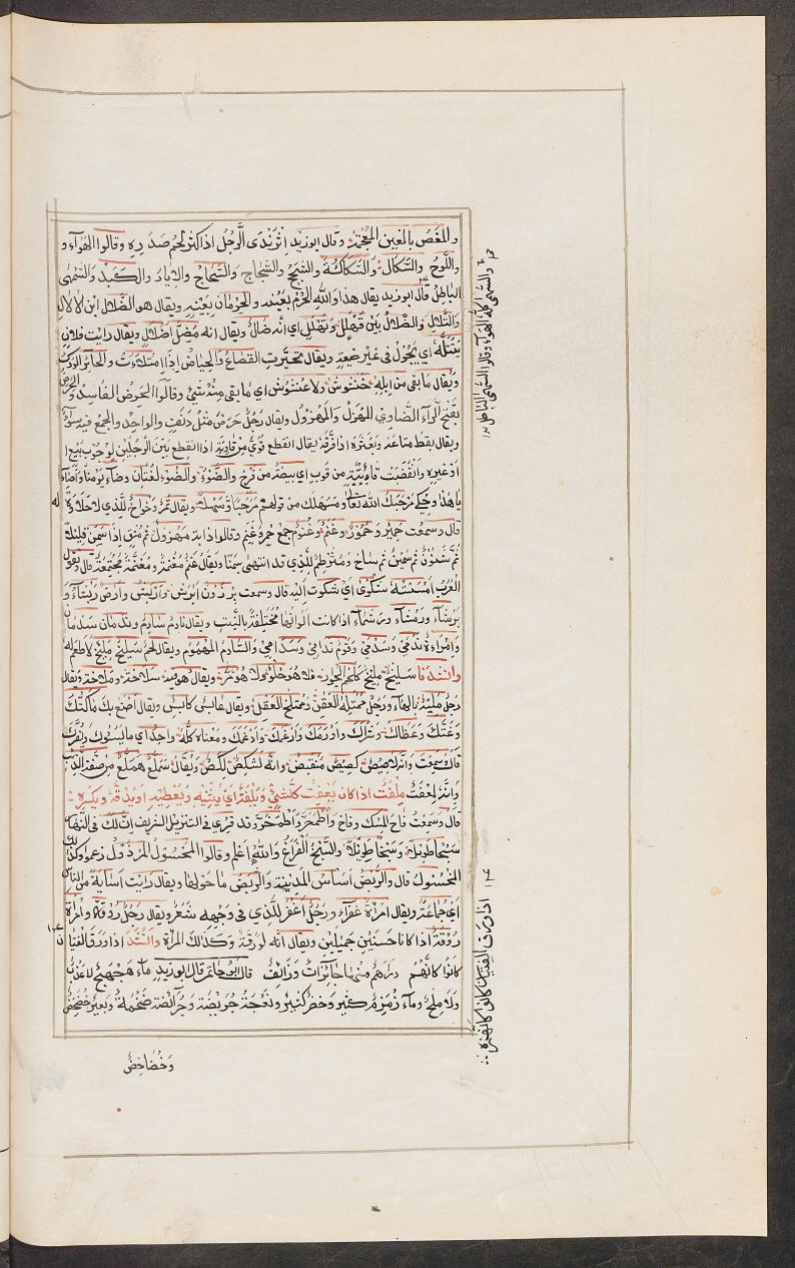 والمغص بالغين المعجمة وقال ابو زيد اثرندى الرجل اذا كثر لحم صدره وقالوا الهواء و
واللوح والسكاك والسكاكة والسحاح والاياد والكبد والسمهى
الباطل قال ابو زيد يقال هذا والله الحرم بعينه والحرمان بعينه ويقال هو الضلال ابن الالال
والتلال والضلال بين قهلل وثهلل اي انه ضال ويقال انه مضل اضلال ويقال رايت فلان
يتتله اي يجول في غير ضيعة ويقال تحيرت القصاع والحياض اذا امتلات والحائر الودك
ويقال ما بقي من ابله خنشوش ولا عنشوش اي ما بقي منه شيء وقالوا الحرض الفاسد والحرض
بفتح الراء الضاوي المهزول ويقال رجل حرض مثل دنف والواحد والجمع فيه سواء
ويقال بقط متاعه وبعثره اذا فرقه يقال انقطع قوي من قاوية اذا انقطع بين الرجلين لوجوب بيع ا
او غيره وانقضبت قائبة من قوب اي بيضة من فرخ والضوء والضوء لغتان وضاء يومنا واضاء
يا هذا وحكي مرحبك الله تعالى ومسهلك من قولهم مرحبا وسهلا ويقال تمر وخواخ للذي لا حلاوة له
قال وسمعت حمير وحمور وغنم وغنوم جمع حمر وغنم وقالوا دابة مهزول ثم منق اذا سمن قليلا
ثم شنون ثم سمين ثم ساح ومترطم للذي قد انتهى سمنا ويقال غنم مغنمة ومغنمة مجتمعة قال ويقول
العرب امسسته شكوى اي شكوت اليه قال وسمعت برذون ابرش واربش وارض ربشاء و
برشاء ورمشاء ومرشاء اذا كانت الوانها مختلفة بالنبت ويقال نادم سادم وندمان سدمان
وامراة ندمى وسدمى وقوم ندامى وسدامى والسادم المهموم ويقال لحم سليخ مليخ لا طعم له
وانشدنا سليخ مليخ كلحم الحوار فلا هو حلو ولا هو مر ويقال هو فيه سلاخة وملاخة ويقال
رجل ممتله العقل وممتلخ العقل ويقال عابس كابس ويقال اصنع بك ما كتك
وغتك وعظاك وشراك واورمك وارغمك وادغمك ومعناه كله واحد اي ما يسوك ويغرك
قال سمعت وانه لاصيص كصيص منقبض وانه لشكص لكص ويقال سملع هملع من صفة الذئب
وانه لعفت ملفت اذا كان يعفت كل شيء ويلفته اي يثنيه ويعطيه او يدقه ويكسره
قال وسمعت فاح المسك وفاخ واطمحر واطمخر وقد قري في التنزيل الشريف ان لك في النهار
سبحا طويلا وسبخا طويلا والسبخ الفراغ والله اعلم وقالوا المخسول المرذول زعموا وكذلك
المحسول قال والربض اساس المدينة والربض ما حولها ويقال رايت اسابة من الناس
اي جماعة ويقال امراة غفراء ورجل اغفر للذي في وجهه شعر ويقال رجل روقة وامراة
روقة اذا كانا حسنين جميلين ويقال انه لورقة وكذلك المراة وانشد اذا ورق الفتيان
كانوا كانهم دراهم منها جائزات وزائف قال ابو حاتم قال ابو زيد ماء هجهج لا عذب
ولا ملح وماء زمزم كثير وخضر كثير ونعجة جربضة وجرائضة ضخمة وبعير خضخض
وخضاخض
والسمهى كله الهواء وقالوا السمهى الباطل
اذا ورق الفتيان كانوا كانهم